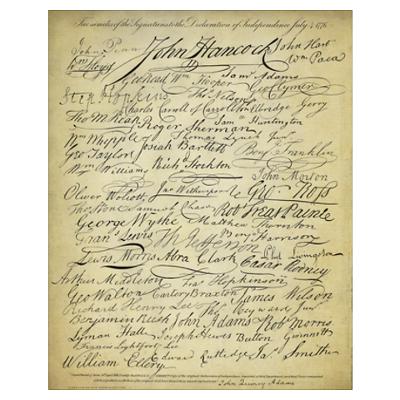 Facsimiles of the Signatures to the Declaration of Independence July 4 1776
John Penn John Hancock John Hart
Wm Floyd Wm Paca
Wm Hooper Saml Adams
Geo Clymer
Step Hopkins Thos Nelson
Charles Carroll of Carrollton Elbridge Gerry
Tho M:Kean Roger Sherman Saml Huntington
Wm Whipple Thomas Lynch Junr
Geo Taylor Josiah Bartlett Benj Franklin
Wm Williams Richd Stockton
John Morton
Oliver Wolcott Jno Witherspoon Geo Ross
Thos Stone Samuel Chase Robt Treat Paine
George Wythe Matthew Thornton
Frans Lewis Th Jefferson Benj Harrison
Lewis Morris Abra Clark Caesar Rodney
Phil Livingston
Arthur Middleton Fras Hopkinson
Geo Walton Carter Braxton James Wilson
Richard Henry Lee Thos Heyward Junr
Benjamin Rush John Adams Robt Morris
Lyman Hall Joseph Hewes Button Gwinnett
Francis Lightfoot Lee
William Ellery Edward Rutledge Jas Smith
John Quincy Adams